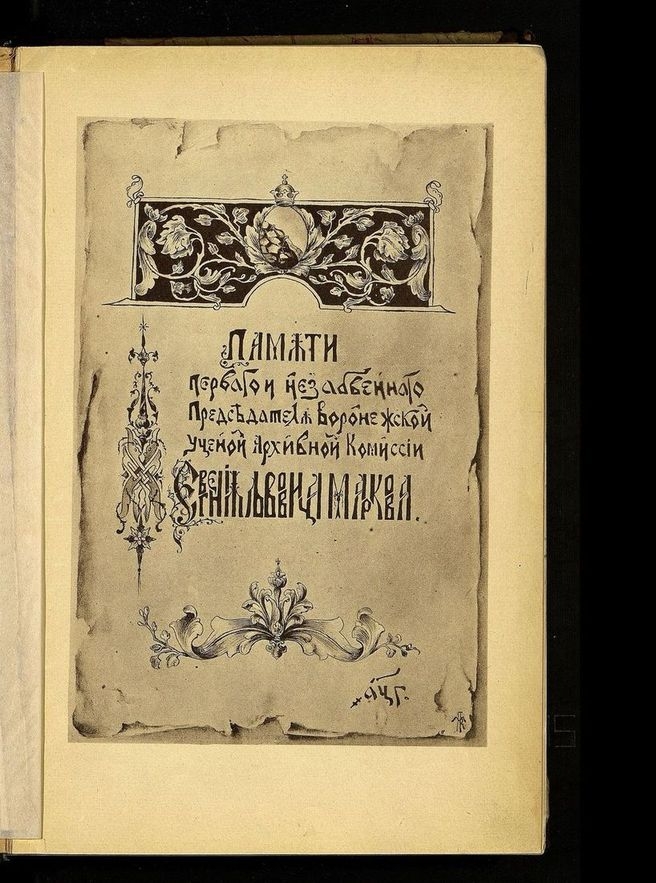 Памѧти
перваго и незабвеннаго
Предсѣдателѧ Воронежской
Ученой Архивной Комиссіи
Евгеніѧ Львовича Маркова.
҂ац҃г.